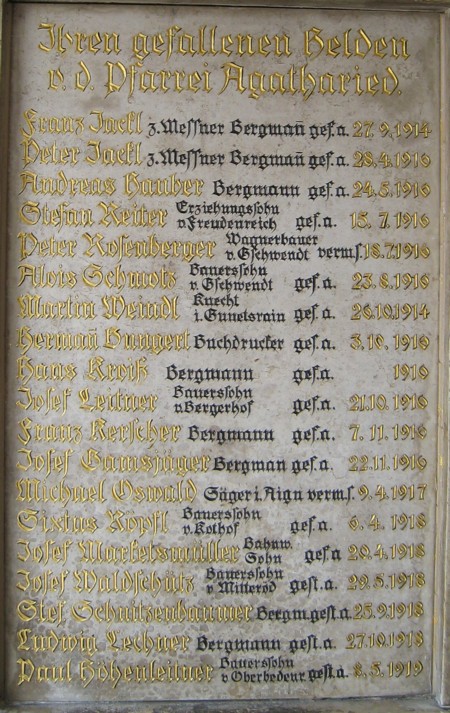 Ihren gefallenen Helden
v. d. Pfarrei Agatharied.
Franz Jackl z. Messner Bergmañ gef. a. 27. 9. 1914
Peter Jackl z. Messner Bergmañ gef. a. 28. 4. 1916
Andreas Hauber Bergmann gef. a. 24. 5. 1916
Stefan Reiter Erziehungssohn v. Freudenreich gef. a. 15. 7. 1916
Peter Rosenberger Wagnerbauer v. Gschwendt verm. s. 18. 7. 1916
Alois Schmotz Bauerssohn v. Gschwendt gef. a. 23. 8. 1916
Martin Weindl Knecht i. Gunetsrain gef. a. 26. 10. 1914
Hermañ Bungert Buchdrucker gef. a. 3. 10. 1916
Haas Kroiß Bergmann gef. a. 1916
Josef Leitner Bauerssohn v. Bergerhof gef. a. 21. 10. 1916
Franz Kerscher Bergmann gef. a. 7. 11. 1916
Josef Gamsjäger Bergman gef. a. 22. 11. 1916
Michael Oswald Säger i. Aign verm. s. 9. 4. 1917
Sixtus Kopfl Bauerssohn v. Kothof gef. a. 6. 4. 1918
Josef Markelsmüller Bahnw. Sohn gef. a 20. 4. 1918
Josef Waldschütz Bauerssohn v. Mitteröd gest. a. 29. 5. 1918
Stef. Schnitzenbaumer Bergm. gest. a. 25. 9. 1918
Ludwig Lechner Bergmann gest. a. 27. 10. 1918
Paul Höhenleitner Bauerssohn v. Oberbedenr. gest. a. 8. 5. 1919